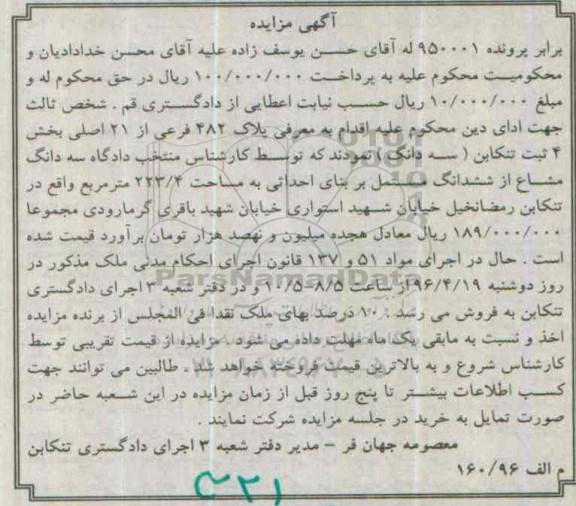 آگهی مزایده
برابر پرونده ۹۵۰۰۰۱ له آقای حسن یوسف زاده علیه آقای محسن خدادادیان و
محکومیت محکوم علیه به پرداخت ۱۰۰/۰۰۰/۰۰۰ ریال در حق محکوم له و
مبلغ ۱۰/۰۰۰/۰۰۰ ریال حسب نیابت اعطایی از دادگستری قم . شخص ثالث
جهت ادای دین محکوم علیه اقدام به معرفی پلاک ۴۸۲ فرعی از ۲۱ اصلی بخش
۴ ثبت تنکابن ( سه دانگ ) نمودند که توسط کارشناس منتخب دادگاه سه دانگ
مشاع از ششدانگ مشتمل بر بنای احداثی به مساحت ۲۲۳/۴ مترمربع واقع در
تنکابن رمضانخیل خیابان شهید استواری خیابان شهید باقری گرمارودی مجموعا
۱۸۹/۰۰۰/۰۰۰ ریال معادل هجده میلیون و نهصد هزار تومان برآورد قیمت شده
است . حال در اجرای مواد ۵۱ و ۱۳۷ قانون اجرای احکام مدنی ملک مذکور در
روز دوشنبه ۹۶/۴/۱۹ از ساعت ۸/۵-۱۰/۵ و در دفتر شعبه ۳ اجرای دادگستری
تنکابن به فروش می رسد . ۱۰ درصد بهای ملک نقدا فی المجلس از برنده مزایده
اخذ و نسبت به مابقی یک ماه مهلت داده می شود . مزایده از قیمت تقریبی توسط
کارشناس شروع و به بالاترین قیمت فروخته خواهد شد . طالبین می توانند جهت
کسب اطلاعات بیشتر تا پنج روز قبل از زمان مزایده در این شعبه حاضر در
صورت تمایل به خرید در جلسه مزایده شرکت نمایند .
معصومه جهان فر – مدیر دفتر شعبه ۳ اجرای دادگستری تنکابن
م الف ۱۶۰/۹۶
ParsNamadData